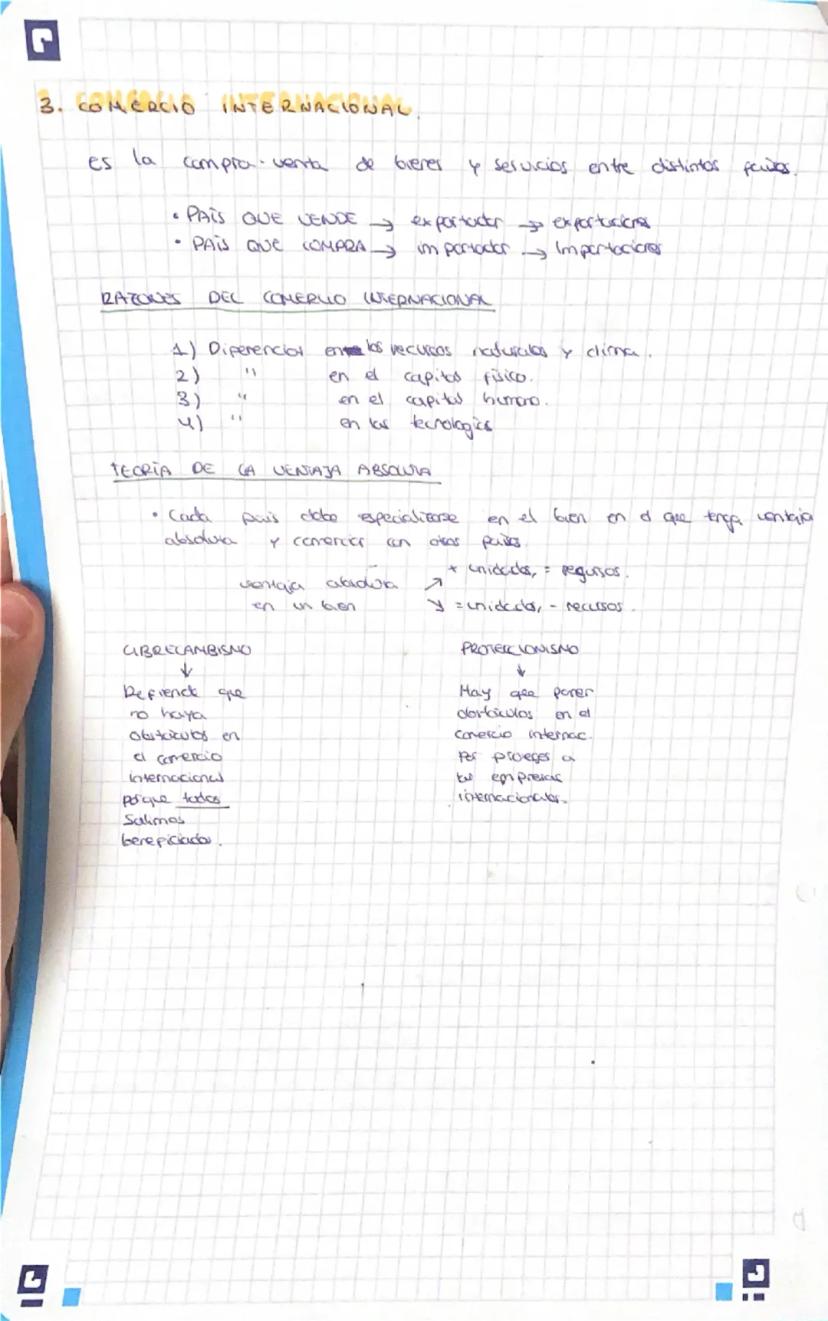 3. COMERCIO INTERNACIONAL.
es la compra-venta de bienes y servicios entre distintos países.
• PAÍS QUE VENDE → exportador → exportaciones
• PAÍS QUE COMPRA → importador → Importaciones
RAZONES DEL COMERCIO INTERNACIONAL
1) Diferencias en los recursos naturales y clima.
2) " en el capital físico.
3) " en el capital humano.
4) " en las tecnologías
TEORÍA DE LA VENTAJA ABSOLUTA
• Cada país debe especializarse en el bien en el que tenga ventaja
absoluta y comerciar con otros países.
ventaja absoluta ↗ + unidades, = recursos.
en un bien ↘ = unidades, - recursos.
LIBRECAMBISMO PROTECCIONISMO
↓ ↓
Defiende que Hay que poner
no haya obstáculos en el
obstáculos en comercio internac.
el comercio por proteger a
internacional las empresas
porque todos internacionales.
Salimos
beneficiados.